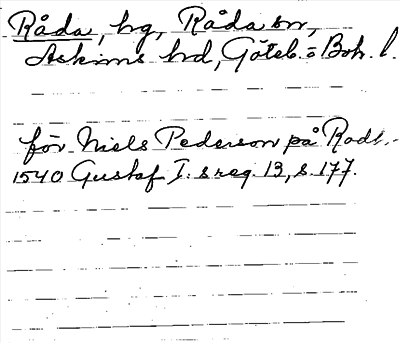 Råda, hg, Råda sn,
Askims hd, Göteb. o Boh. l.
för Niels Pederson på Rade.-
1540 Gustaf I:s reg. 13, s. 177.